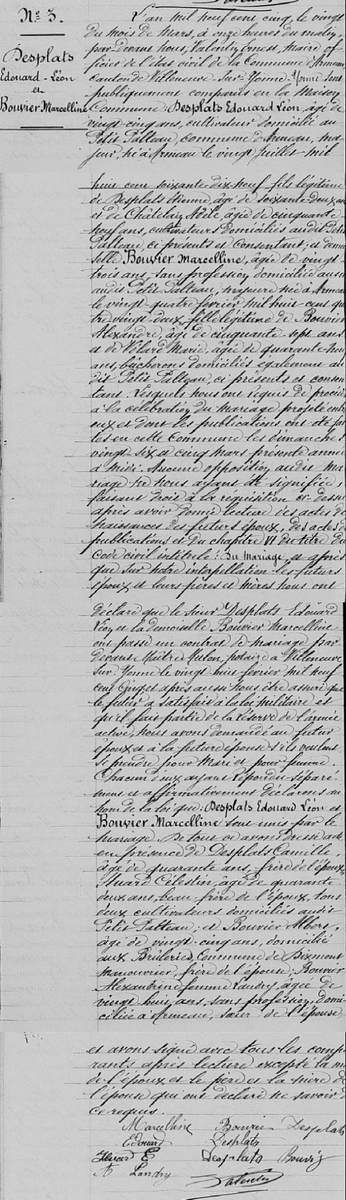 N° 3.
Desplats
Edouard-Léon
et
Bouvier Marcelline
L'an mil neuf cent cinq, le vingt
du mois de Mars, à onze heures du matin,
par devant nous, Valentin Ernest, Maire of-
ficier de l'état civil de la Commune d'Armeau
canton de Villeneuve-sur-Yonne, Yonne sont
publiquement comparus en la Maison
Commune: Desplats Edouard Léon, âgé de
vingt-cinq ans, cultivateur domicilié au
Petit Palteau, commune d'Armeau, ma-
jeur, né à Armeau le vingt Juillet mil
huit cent soixante dix-neuf fils légitime
de Desplats Etienne, âgé de soixante-deux ans
et de Châtelain Adèle, âgée de cinquante
neuf ans, cultivateurs domiciliés audit Petit
Palteau, ci présents et consentant; et demoi-
selle Bouvier Marcelline, âgée de vingt-
trois ans, sans profession, domiciliée aussi
audit Petit Palteau, majeure née à Armeau
le vingt quatre février mil huit cent qua
tre vingt deux fille légitime de Bouvier
Alexandre, âgé de cinquante sept ans
et de Vélard Marie, âgée de quarante neuf
ans, bûcherons domiciliés également au
dit Petit Palteau, ci présents et consen
tant. Lesquels nous ont requis de procéder
à la célébration du mariage projeté entre
eux et dont les publications ont été fai
tes en cette Commune les dimanches
vingt-six et cinq mars présente année
à midi. Aucune opposition audit ma
riage ne nous ayant été signifiée,
faisant droit à la réquisition ci-dessus
après avoir donné lecture des actes de
naissances des futurs époux, des actes de
publications et du chapitre VI du titre du
Code civil intitulé: Du Mariage, et après
que sur notre interpellation les futurs
époux et leurs pères et mères nous ont
déclaré que le sieur Desplats Edouard
Léon et la demoiselle Bouvier Marcelline
ont passé un contrat de mariage par
devant Maître notaire à Villeneuve
sur Yonne le vingt huit février mil neuf
cent cinq et après aussi nous être assuré que
le futur a satisfait à la loi militaire et
qu'il fait partie de la réserve de l'armée
active, nous avons demandé au futur
époux et à la future épouse s'ils veulent
se prendre pour Mari et pour femme.
Chacun d'eux ayant répondu séparé
ment et affirmativement déclarons au
nom de la loi que Desplats Edouard Léon et
Bouvier Marcelline sont unis par le
mariage. De tout ce avons dressé acte
en présence de Desplats Camille,
âgé de quarante ans, frère de l'époux,
Huard Célestin, âgé de quarante
deux ans, beau frère de l'époux, tous
deux cultivateurs domiciliés audit
Petit Palteau; et Bouvier
âgé de vingt-cinq ans, domicilié
aux Brûleries, Commune de Dixmont
manouvrier, frère de l'épouse; Bouvier
Alexandrine femme Landry, âgée de
vingt huit ans, sans profession, domi-
ciliée à Armeau, sœur de l'épouse
et avons signé avec tous les compa
rants après lecture excepté la mère
de l'époux et le père et la mère de
l'épouse qui ont déclaré ne savoir de
ce requis.
Marcelline Bouvier Desplats
Edouard Desplats
Huard C Desplats Bouvier
A Landry Valentin